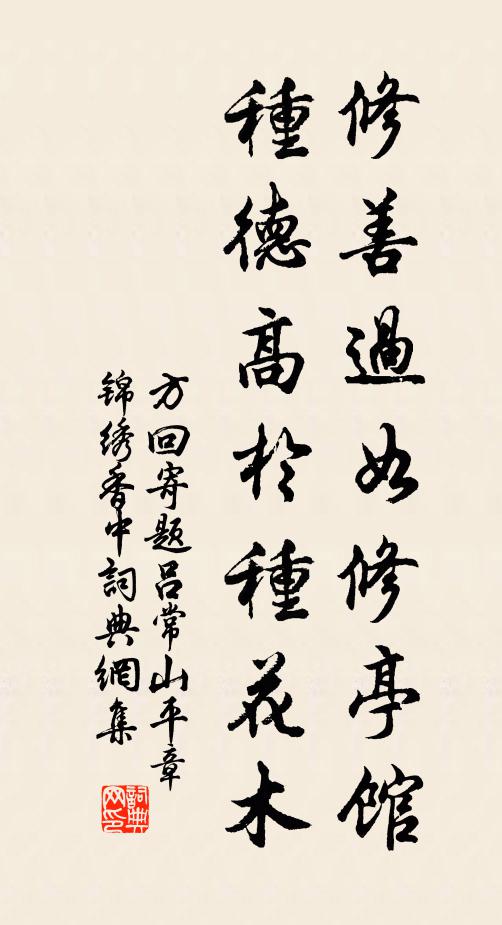 修善過如修亭館
種德高於種花木
方回寄題呂常山平章
錦綉香中詞典網集
詞典网印